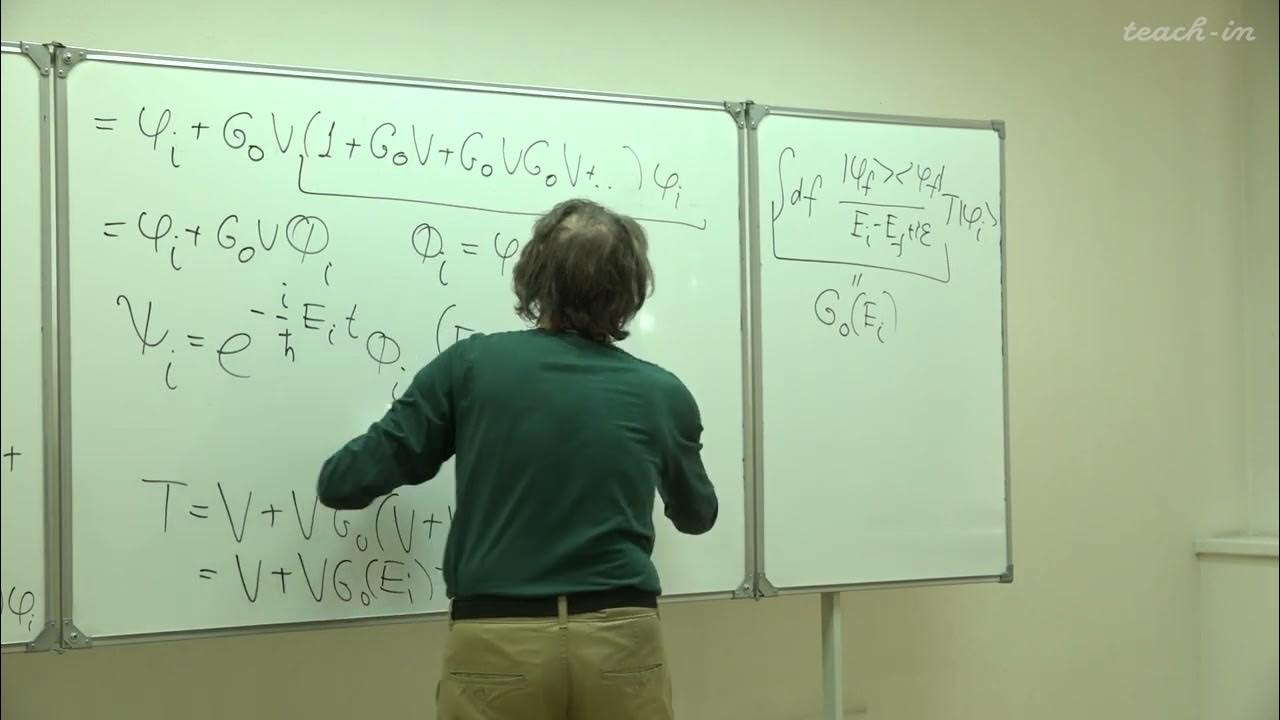 teach-in
= φᵢ + G₀V(1 + G₀V + G₀VG₀V + ...)φᵢ
= φᵢ + G₀VΦᵢ Φᵢ = φ
Ψᵢ = e^{-i/ħ Eᵢt} Φᵢ (E
T = V + VG₀(V +
= V + VG₀(Eᵢ)
+
φᵢ
∫df |φ_f><φ_f| / (Eᵢ - E_f + iε) T|φᵢ>
"
G₀(Eᵢ)